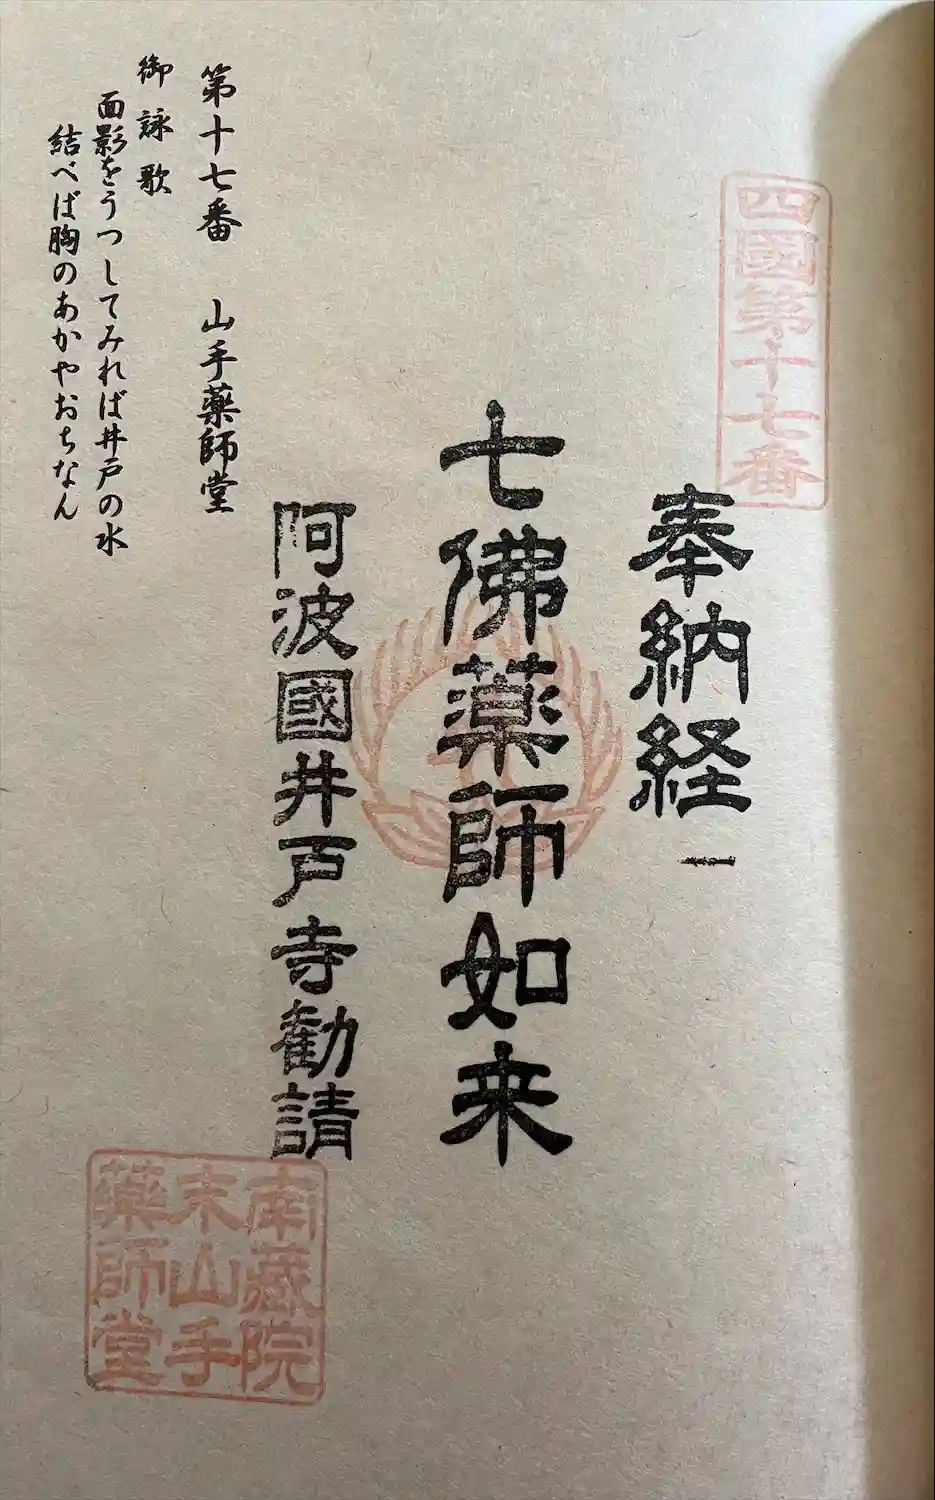 四國第十七番
奉納経
七佛薬師如来
阿波國井戸寺勧請
第十七番　山手薬師堂
御詠歌
面影をうつしてみれば井戸の水
結べば胸のあかやおちなん
南蔵院
末山手
薬師堂